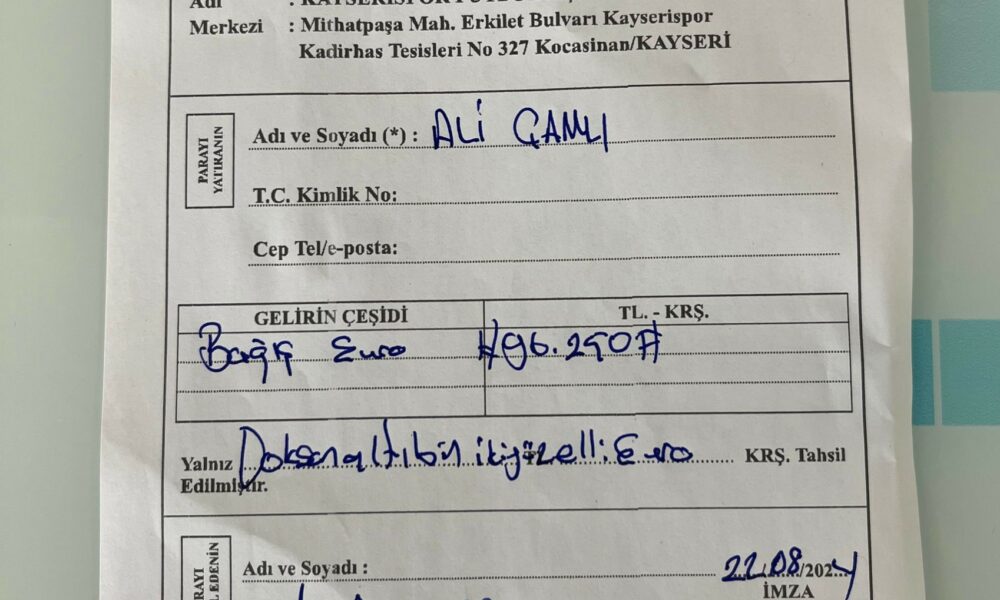 Adı : KAYSERİSPOR
Merkezi : Mithatpaşa Mah. Erkilet Bulvarı Kayserispor
Kadirhas Tesisleri No 327 Kocasinan/KAYSERİ
PARAYI
YATIRANIN
Adı ve Soyadı (*) : ALİ ÇAMLI
T.C. Kimlik No:
Cep Tel/e-posta:
GELİRİN ÇEŞİDİ TL. - KRŞ.
Bağış Euro #96.250#
Yalnız Doksanaltıbin ikiyüzelli Euro KRŞ. Tahsil
Edilmiştir.
EDENİN
Adı ve Soyadı : 22/08/2024
İMZA